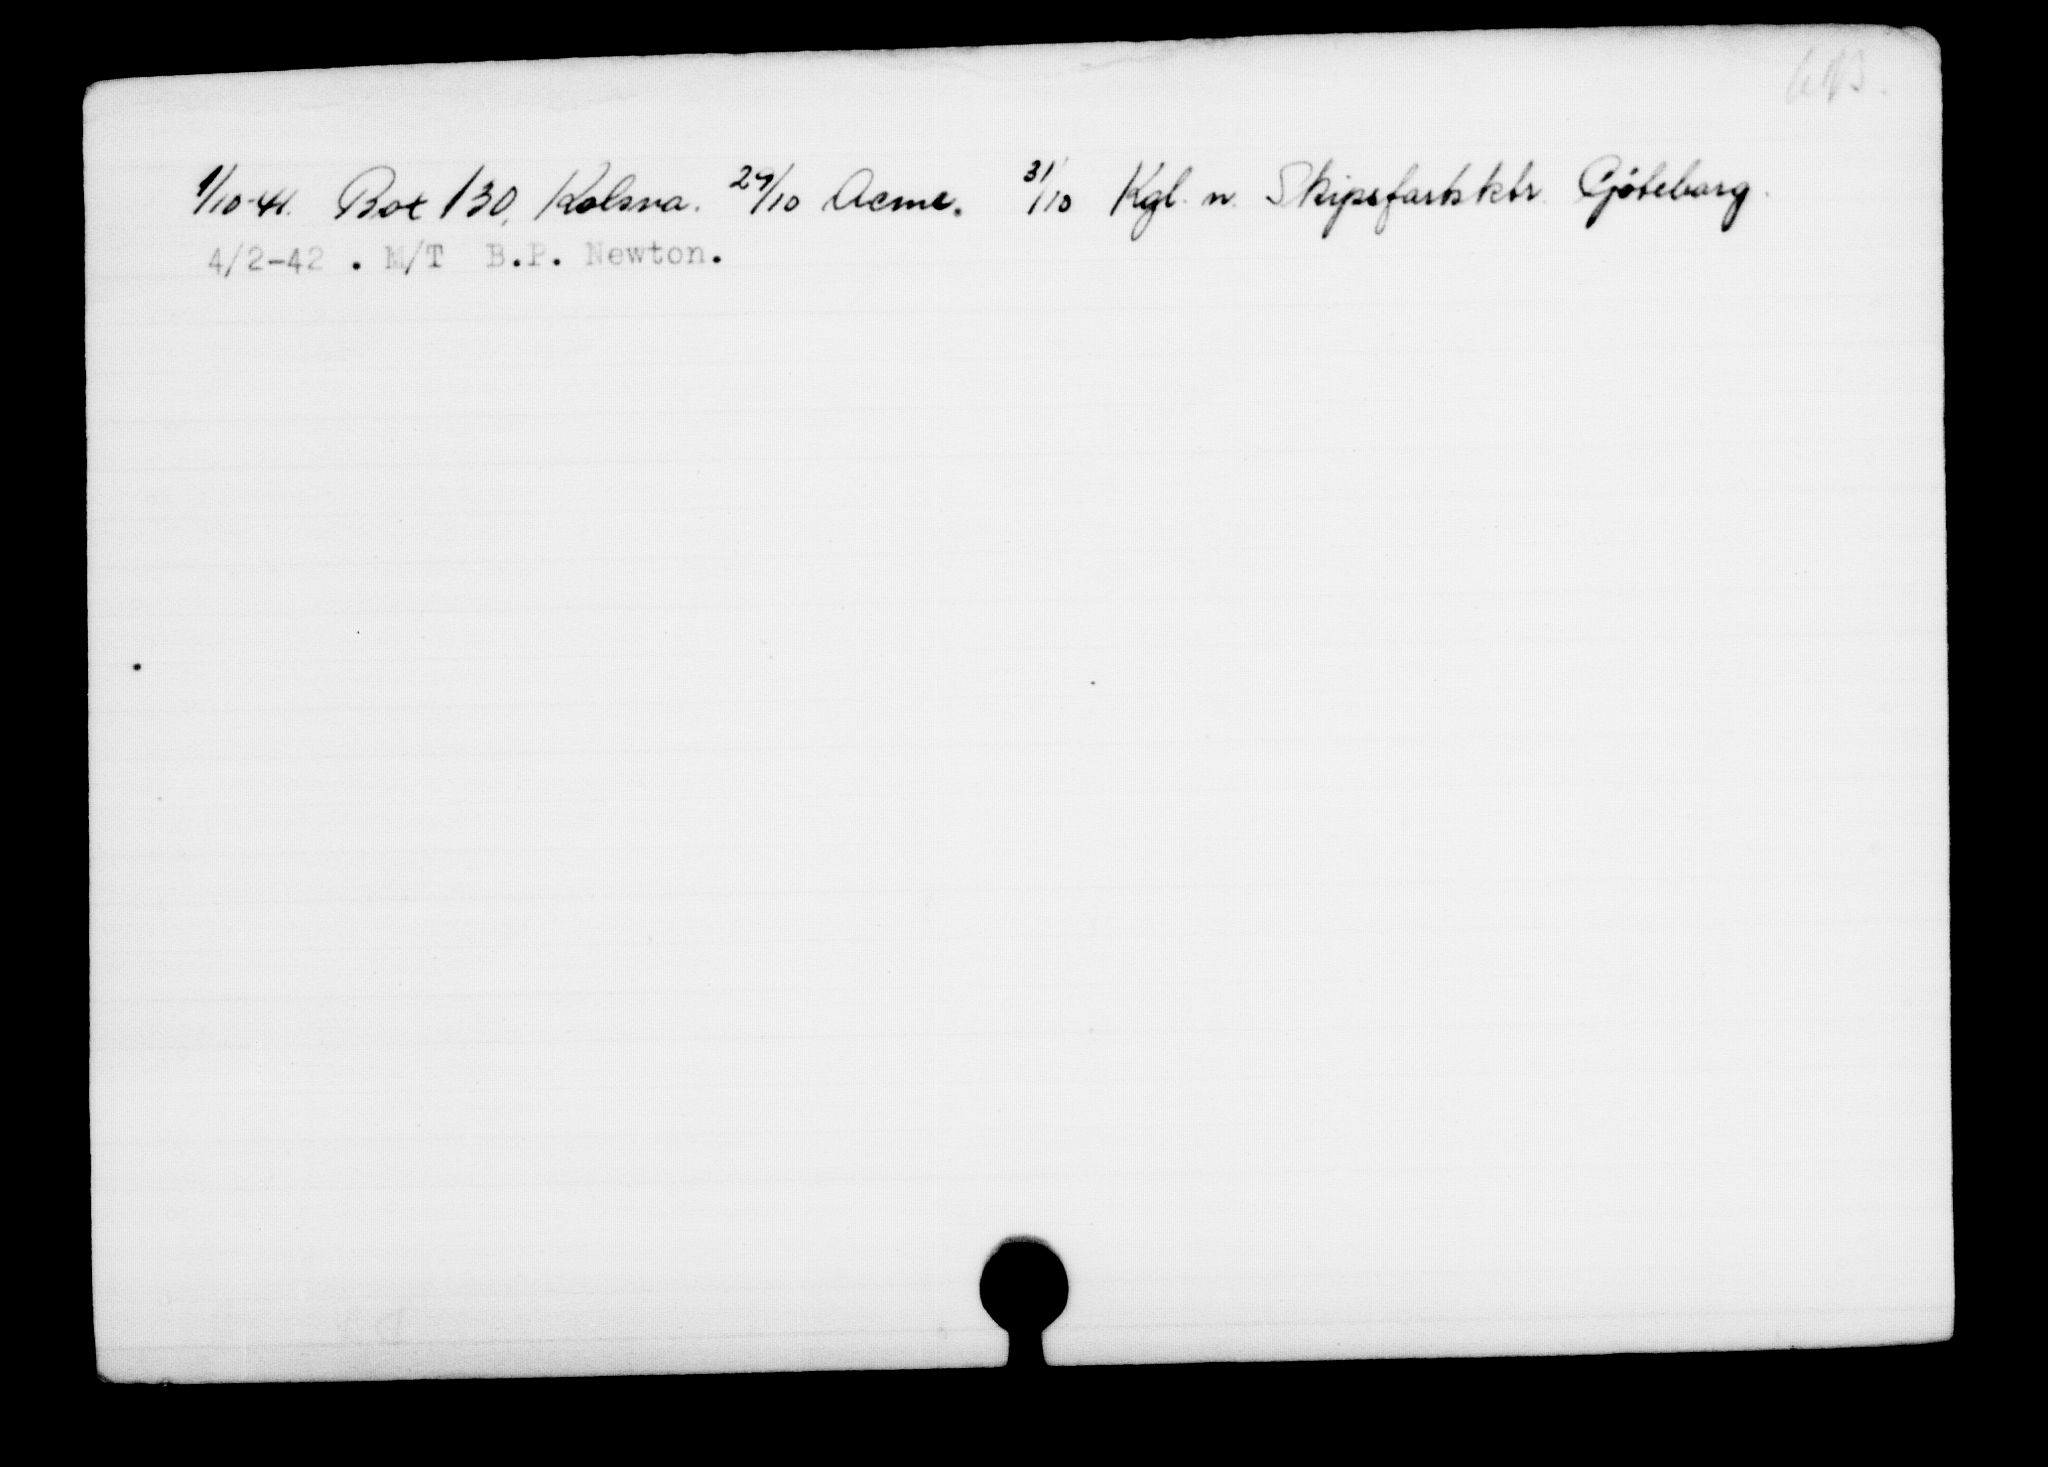 1/10-41. Box 130, Kolsva. 27/10 Acme. 31/10 Kgl. n. Skipsfartsktr. Gjøteborg.
4/2-42 . M/T B.P. Newton.